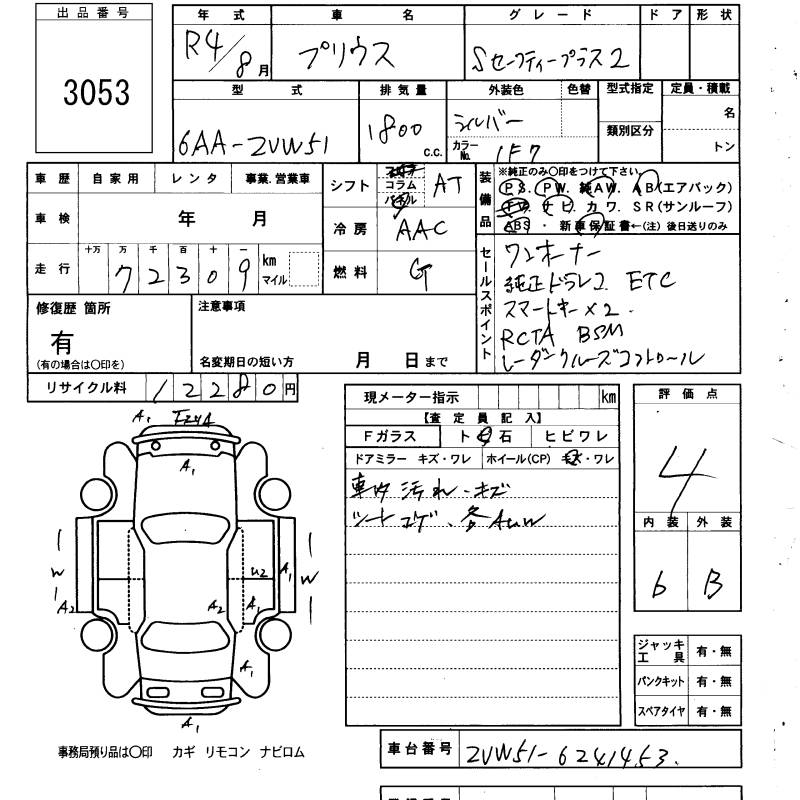 出品番号
3053
年式 車名 グレード ドア 形状
R4/8月 プリウス Sセーフティープラス2
型式 排気量 外装色 色替 型式指定 定員・積載
6AA-ZVW51 1800 c.c. シルバー カラーNo. 1F7 類別区分 名 トン
車歴 自家用 レンタ 事業.営業車
車検 年 月
走行 十万 万 千 百 十 一
72309 km マイル
シフト コラム パネル AT
冷房 AAC
燃料 G
装備品
※純正のみ〇印をつけて下さい。
PS. PW. 純AW. AB(エアバック)
ナビ. カワ. SR(サンルーフ)
ABS ・ 新車保証書←(注) 後日送りのみ
セールスポイント
ワンオーナー
純正ドラレコ ETC
スマートキー×2.
RCTA BSM
レーダークルーズコントロール
修復歴 箇所
有
(有の場合は〇印を)
注意事項
名変期日の短い方 月 日まで
リサイクル料 12280円
現メーター指示 km
【査定員記入】
Fガラス ト 石 ヒビワレ
ドアミラー キズ・ワレ ホイール(CP) キズ・ワレ
車内汚れ・キズ
シートコゲ、各AUW
評価点
4
内装 外装
6 B
ジャッキ工具 有・無
パンクキット 有・無
スペアタイヤ 有・無
A1
A1
W
A2
U2
A1
W
A2
A1
A1
A1
事務局預り品は〇印 カギ リモコン ナビロム
車台番号 ZVW51-6241453.